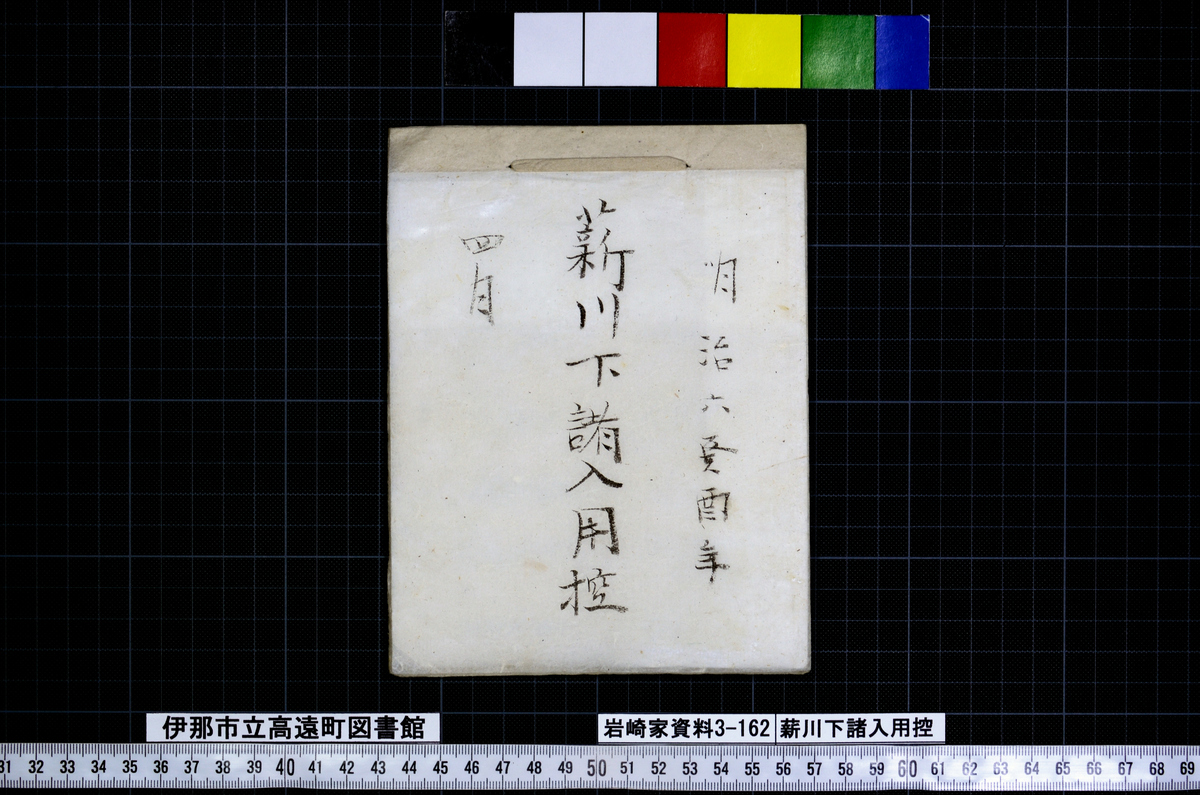 明治六癸酉年
薪川下諸入用控
四月
伊那市立高遠町図書館
岩崎家資料3-162
薪川下諸入用控
31 32 33 34 35 36 37 38 39 40 41 42 43 44 45 46 47 48 49 50 51 52 53 54 55 56 57 58 59 60 61 62 63 64 65 66 67 68 69